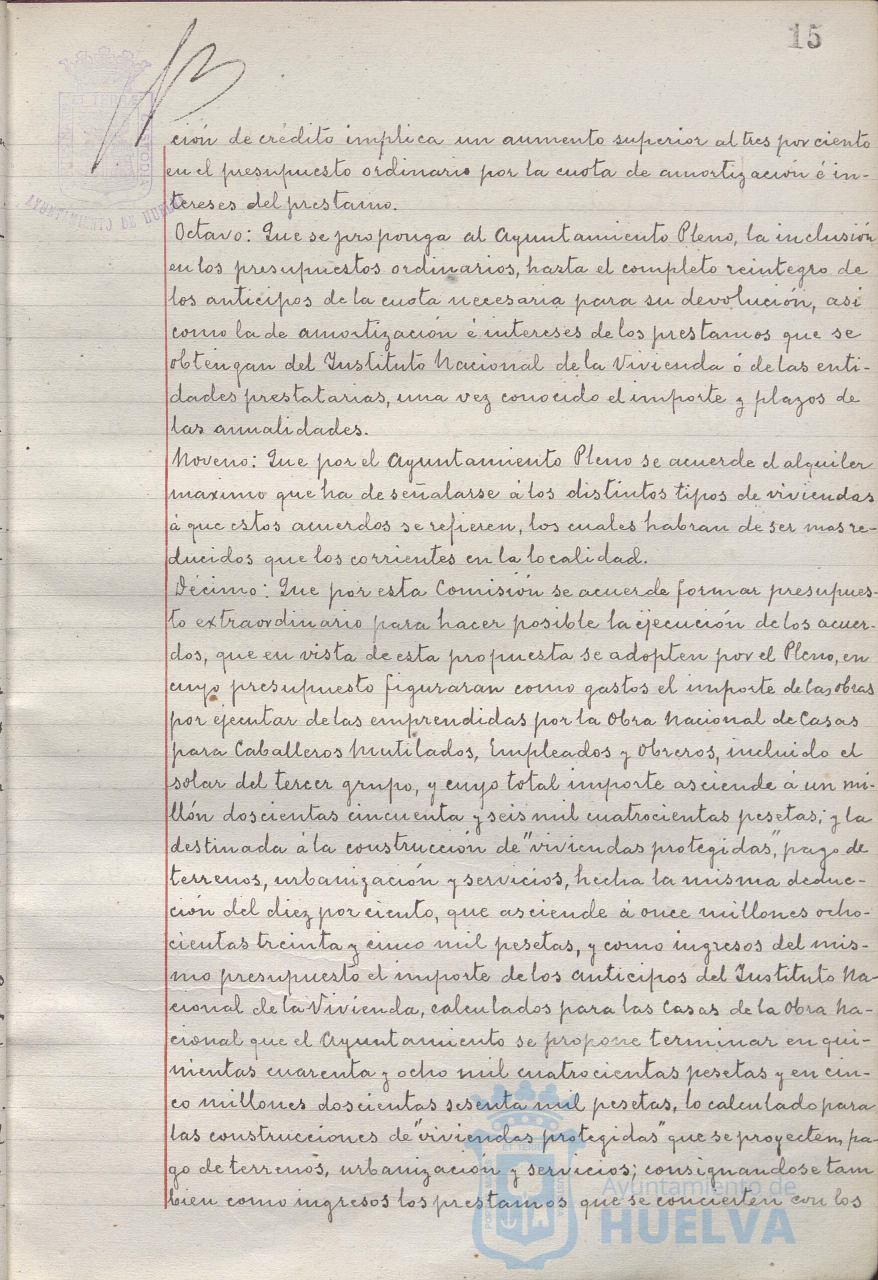 15
AYUNTAMIENTO DE HUELVA
ción de crédito implica un aumento superior al tres por ciento
en el presupuesto ordinario por la cuota de amortización é in-
tereses del prestamo.
Octavo: Que se proponga al Ayuntamiento Pleno, la inclusión
en los presupuestos ordinarios, hasta el completo reintegro de
los anticipos de la cuota necesaria para su devolución, asi
como la de amortización é intereses de los prestamos que se
obtengan del Instituto Nacional de la Vivienda ó de las enti-
dades prestatarias, una vez conocido el importe y plazos de
las anualidades.
Noveno: Que por el Ayuntamiento Pleno se acuerde el alquiler
maximo que ha de señalarse á los distintos tipos de viviendas
á que estos acuerdos se refieren, los cuales habran de ser mas re-
ducidos que los corrientes en la localidad.
Décimo: Que por esta Comisión se acuerde formar presupues-
to extraordinario para hacer posible la ejecución de los acuer-
dos, que en vista de esta propuesta se adopten por el Pleno, en
cuyo presupuesto figuraran como gastos el importe de las obras
por ejecutar de las emprendidas por la Obra Nacional de Casas
para Caballeros Mutilados, Empleados y Obreros, incluido el
solar del tercer grupo, y cuyo total importe asciende á un mi-
llón doscientas cincuenta y seis mil cuatrocientas pesetas; y la
destinada á la construcción de "viviendas protegidas", pago de
terrenos, urbanización y servicios, hecha la misma deduc-
ción del diez por ciento, que asciende á once millones ocho-
cientas treinta y cinco mil pesetas, y como ingresos del mis-
mo presupuesto el importe de los anticipos del Instituto Na-
cional de la Vivienda, calculados para las Casas de la Obra Na-
cional que el Ayuntamiento se propone terminar en qui-
nientas cuarenta y ocho mil cuatrocientas pesetas y en cin-
co millones doscientas sesenta mil pesetas, lo calculado para
las construcciones de "viviendas protegidas" que se proyecten, pa-
go de terrenos, urbanización y servicios; consignandose tam
bien como ingresos los prestamos que se concierten con los
Ayuntamiento de
HUELVA